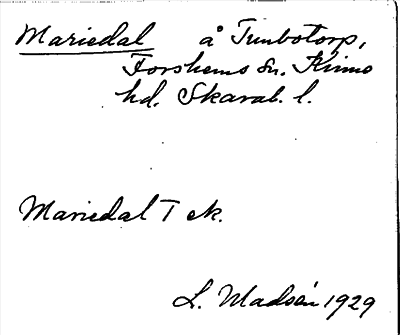 Mariedal å Timbotorp,
Forshems sn. Kinne
hd. Skarab. l.
Mariedal T ek.
L. Madsén 1929